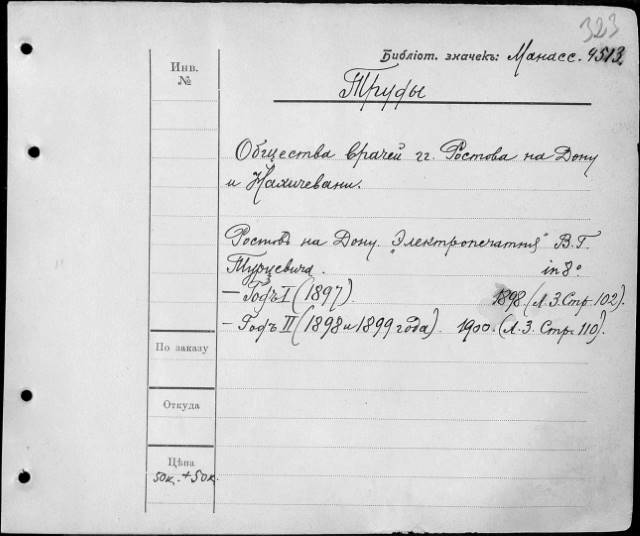 323
Библіот. значекъ: Манасс. 9513.
Инв.
№
Труды
Общества врачей гг. Ростова на Дону
и Нахичевани.
Ростовъ на Дону. „Электропечатня" В. Г.
Турцевича. in 8º
— Годъ I (1897). 1898. (Л. З. Стр. 102).
— Годъ II (1898 и 1899 года). 1900. (Л. З. Стр. 110).
По заказу
Откуда
Цѣна
50к. + 50к.